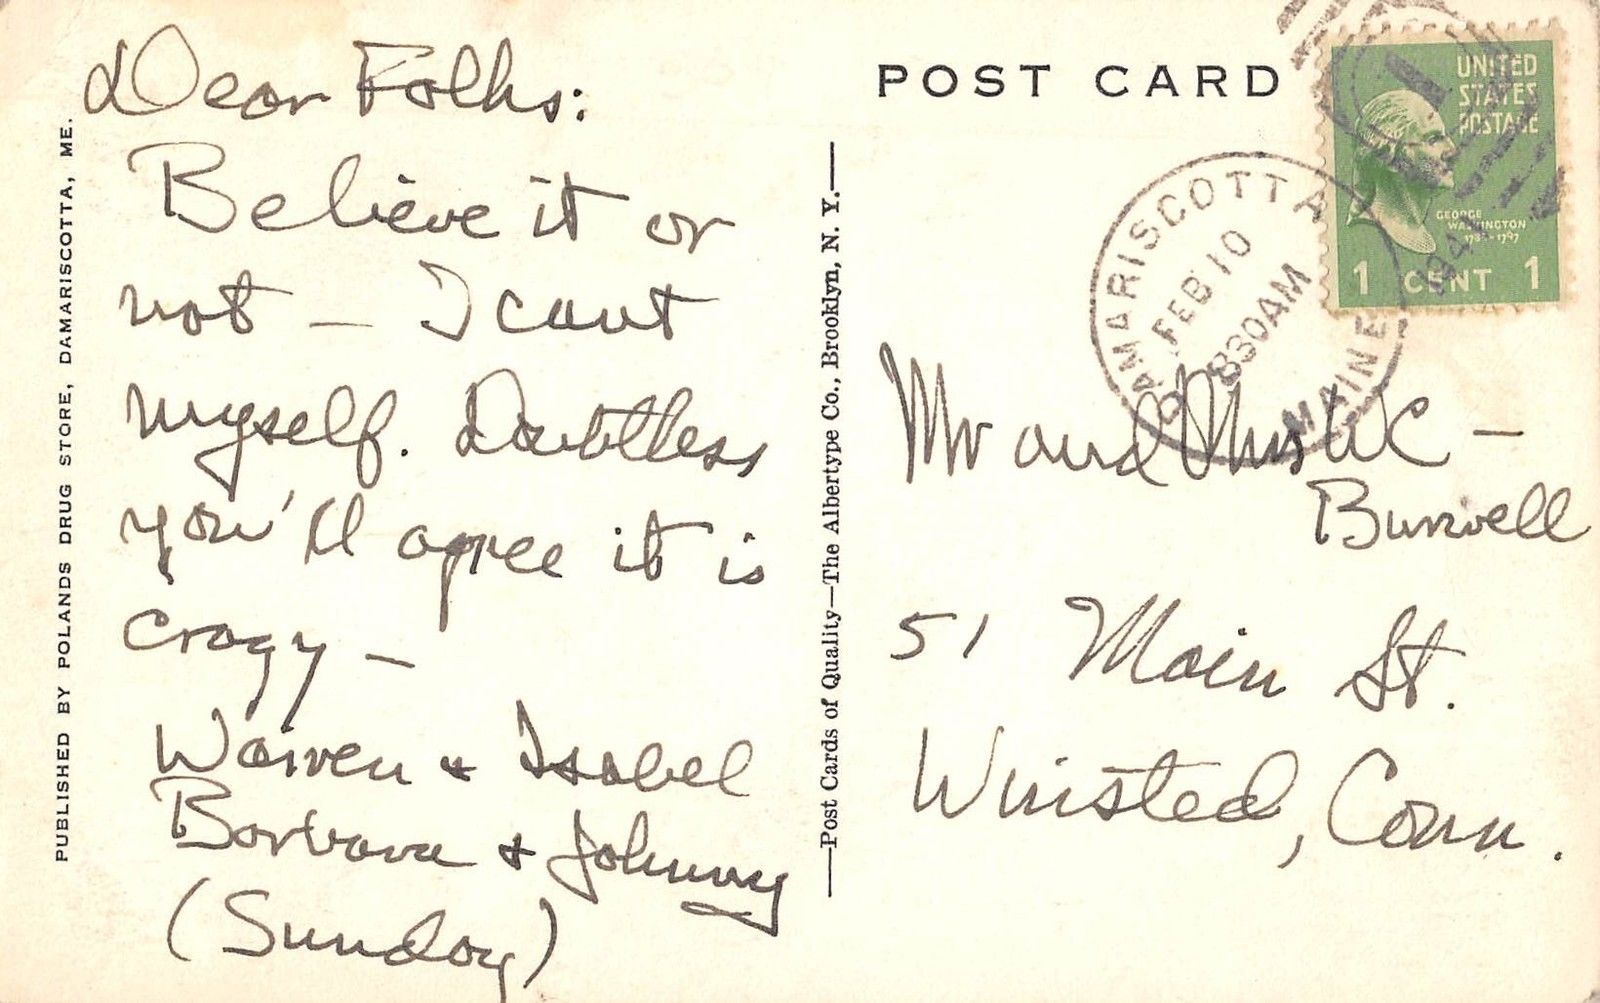 Dear Folks:
Believe it or
not — I cant
myself. Doubtless
you'll agree it is
crazy —
Warren + Isabel
Barbara + Johnny
(Sunday)
PUBLISHED BY POLANDS DRUG STORE, DAMARISCOTTA, ME.
—Post Cards of Quality—The Albertype Co., Brooklyn, N. Y.—
POST CARD
UNITED
STATES
POSTAGE
GEORGE
WASHINGTON
1789-1797
1 CENT 1
DAMARISCOTTA
FEB 10
830AM
MAINE
Mr and Mrs W C —
Burwell
51 Main St.
Winsted, Conn.